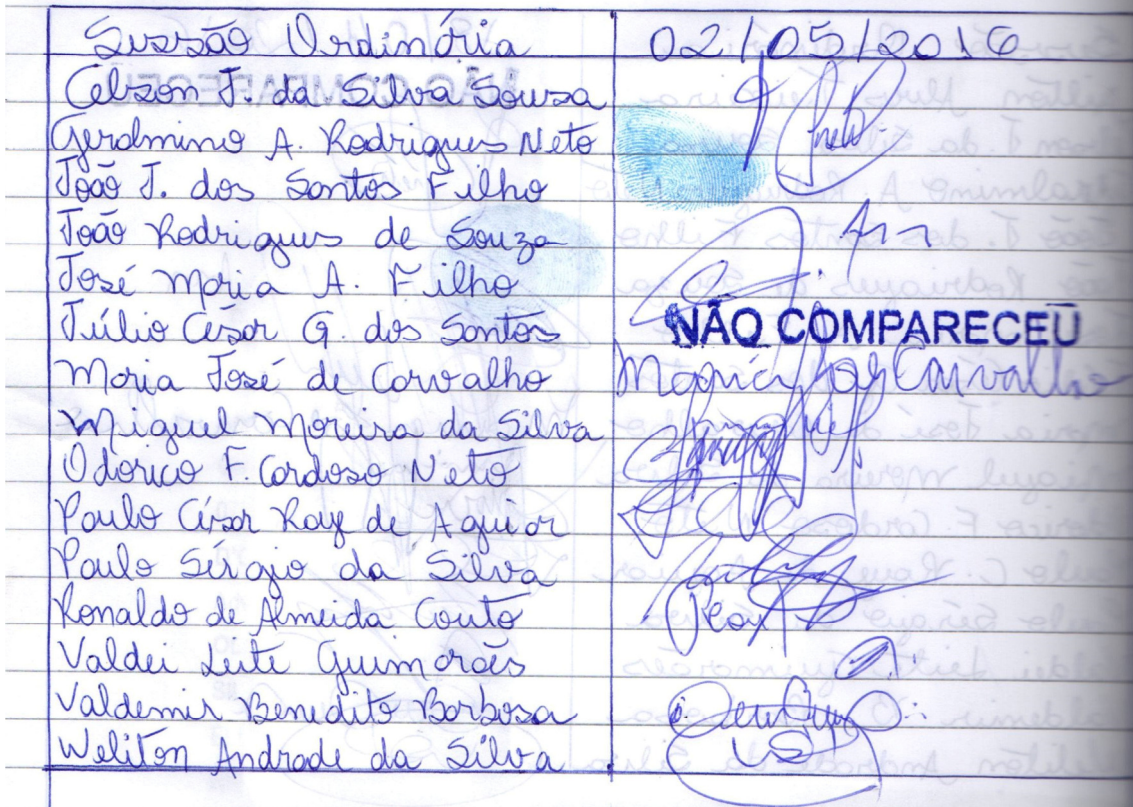 Sessão Ordinária 02/05/2016
Celson J. da Silva Sousa
Geralmino A. Rodrigues Neto
João J. dos Santos Filho
João Rodrigues de Souza
José Maria A. Filho
Júlio César G. dos Santos NÃO COMPARECEU
Maria José de Carvalho Maria José Carvalho
Miguel Moreira da Silva
Odorico F. Cardoso Neto
Paulo César Raye de Aguiar
Paulo Sérgio da Silva
Ronaldo de Almeida Couto
Valdei Leite Guimarães
Valdemir Benedito Barbosa
Weliton Andrade da Silva